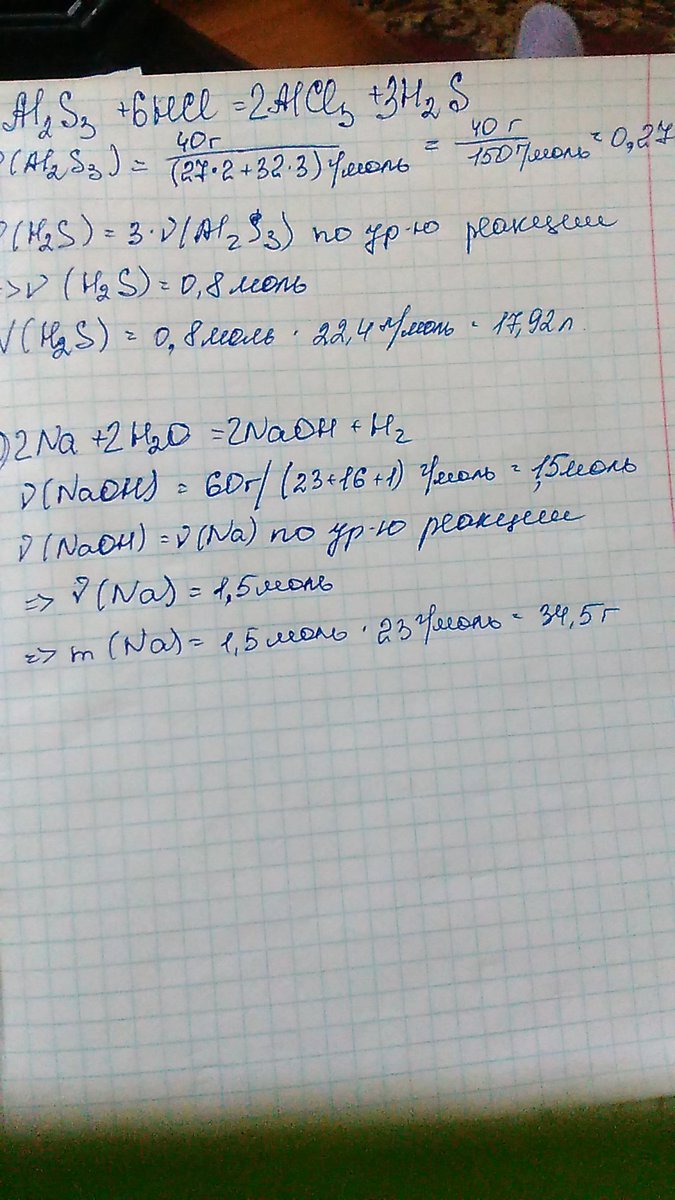 Al₂S₃ + 6HCl = 2AlCl₃ + 3H₂S
ν(Al₂S₃) = 40г / (27·2+32·3) г/моль = 40 г / 150 г/моль = 0,27
ν(H₂S) = 3·ν(Al₂S₃) по ур-ю реакции
=> ν (H₂S) = 0,8 моль
V(H₂S) = 0,8 моль · 22,4 л/моль = 17,92 л
) 2Na + 2H₂O = 2NaOH + H₂
ν(NaOH) = 60г/(23+16+1) г/моль = 1,5 моль
ν(NaOH) = ν(Na) по ур-ю реакции
=> ν(Na) = 1,5 моль
=> m (Na) = 1,5 моль · 23 г/моль = 34,5 г